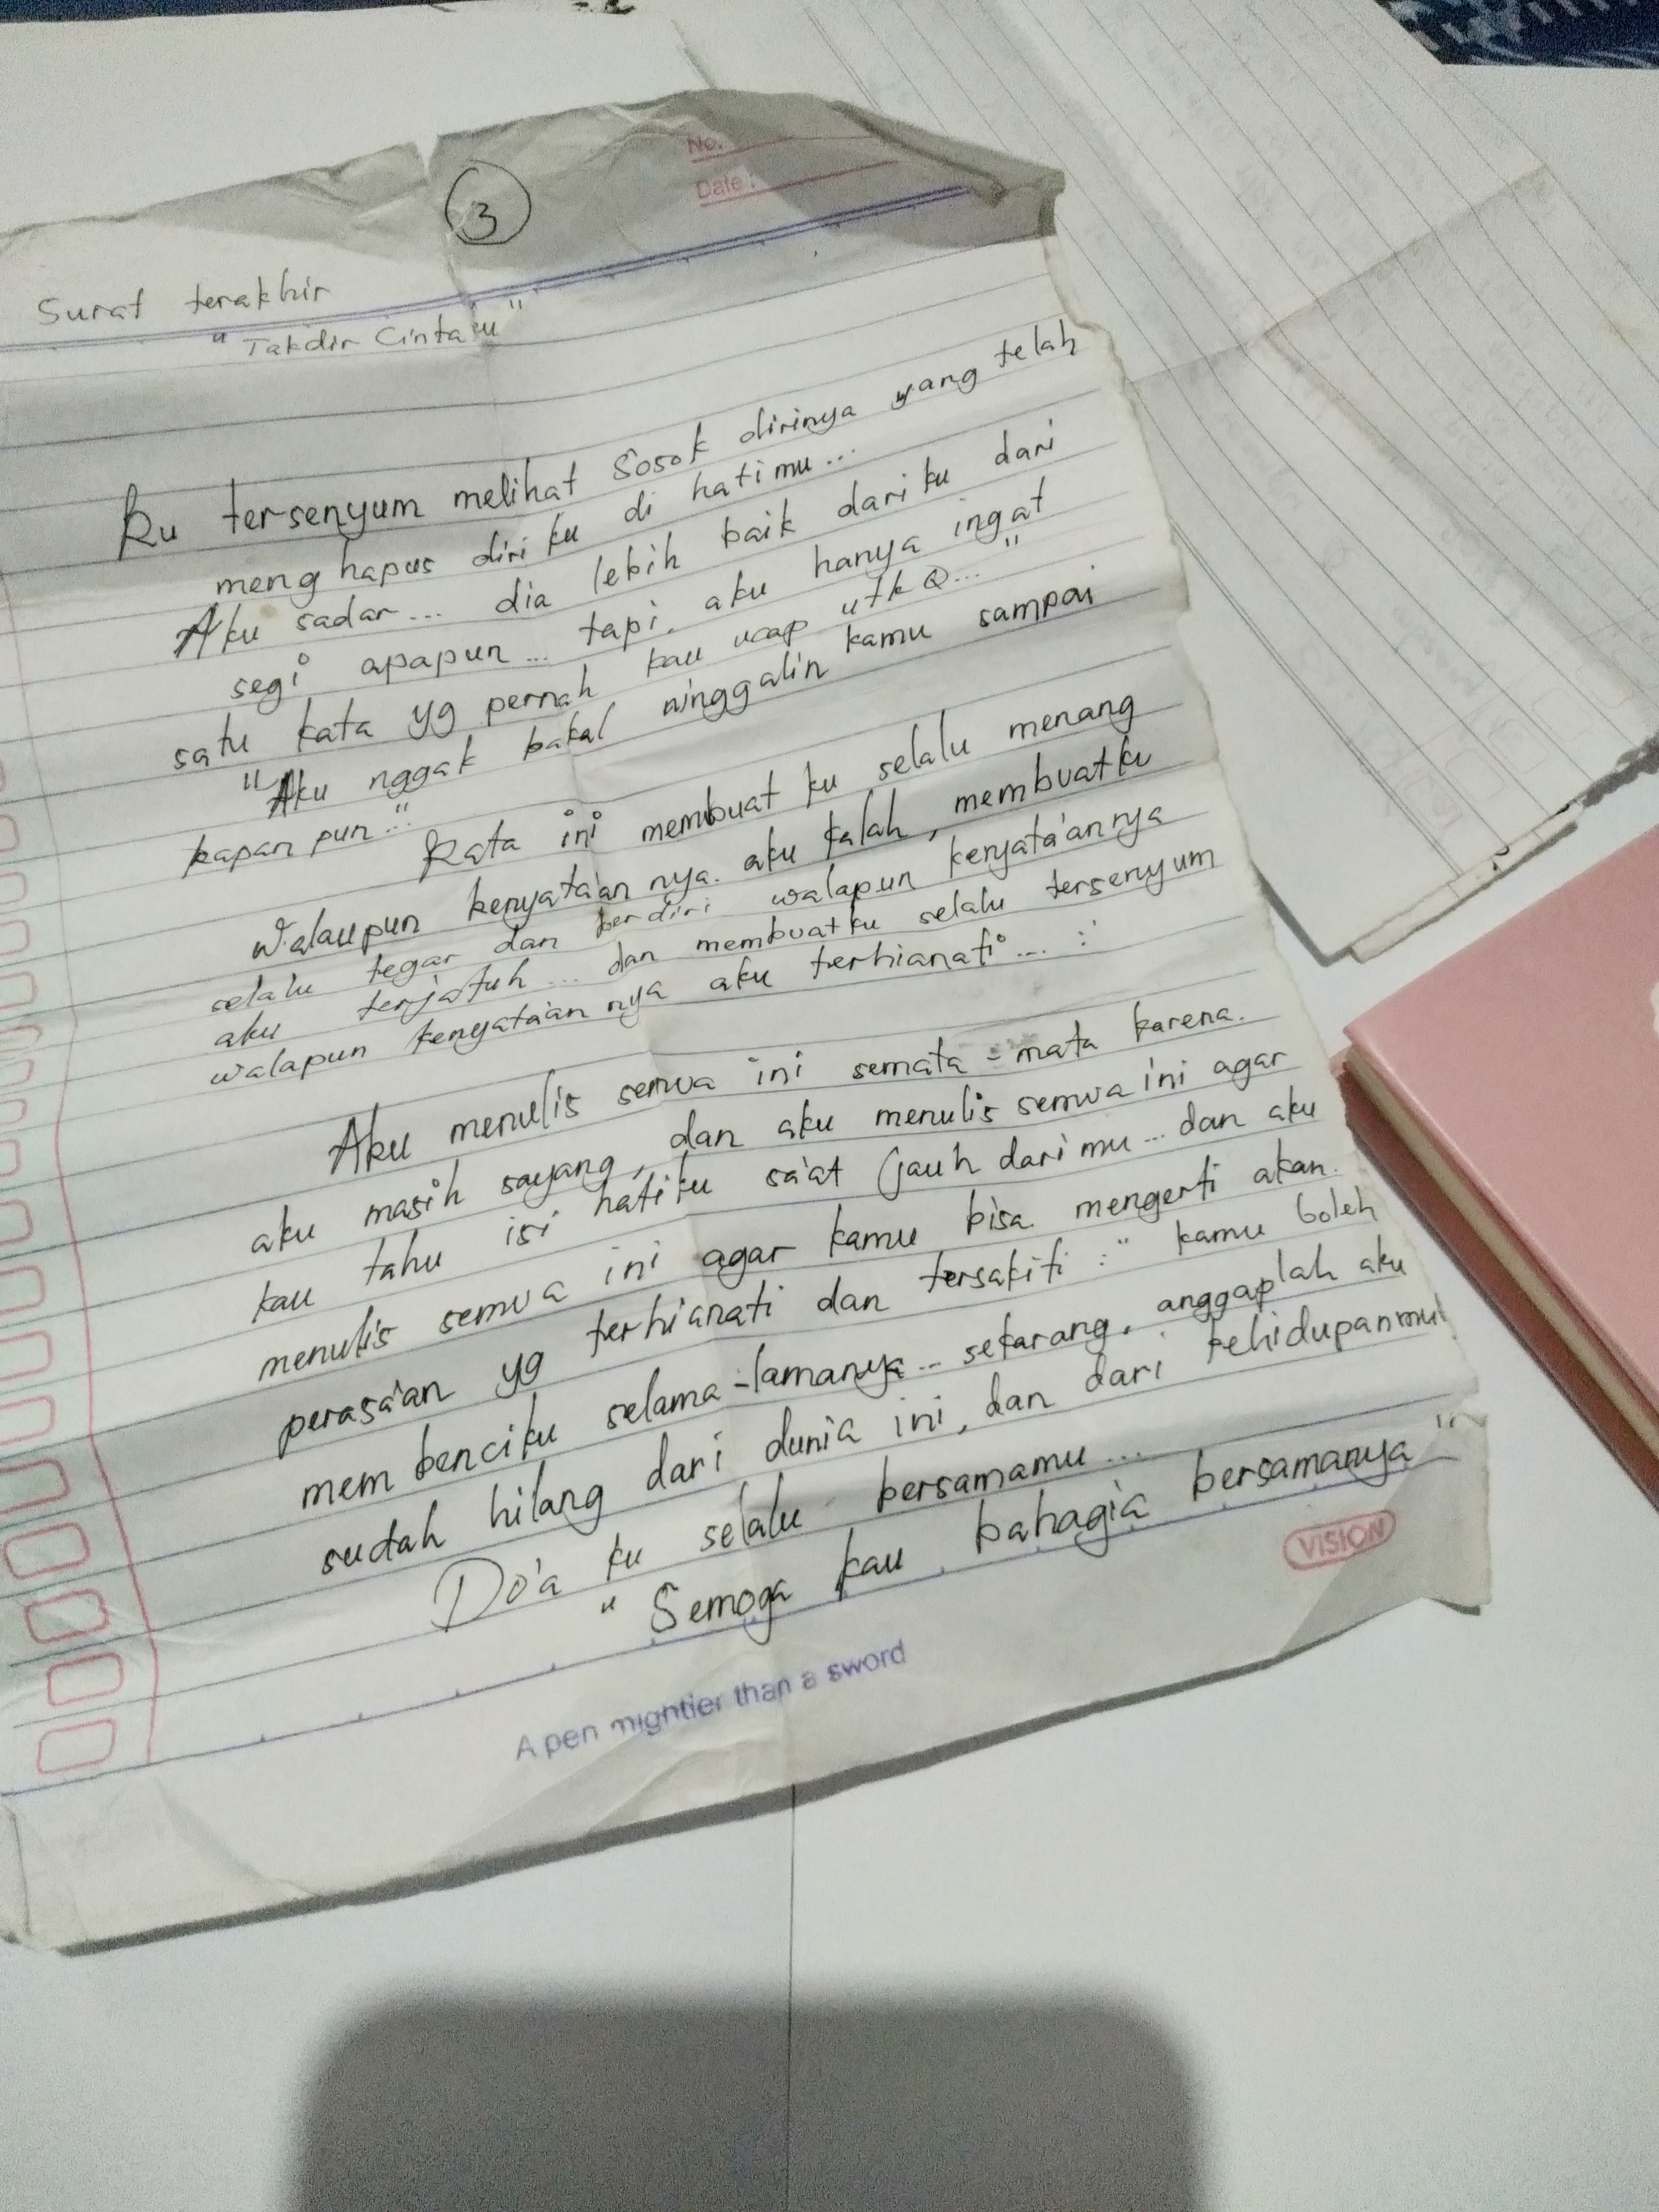 3
No.
Date :
Surat terakhir
" Takdir Cintaku "
Ku tersenyum melihat sosok dirinya yang telah
menghapus diriku di hatimu...
Aku sadar... dia lebih baik dariku dari
segi apapun... tapi. aku hanya ingat
satu kata yg pernah kau ucap utk Q... "
"Aku nggak bakal ninggalin kamu sampai
kapan pun..."
Kata ini membuat ku selalu menang
Walaupun kenyata'an nya. aku kalah, membuatku
selalu tegar dan berdiri walapun kenyata'annya
aku terjatuh... dan membuatku selalu tersenyum
walapun kenyata'an nya aku terhianati....:'
Aku menulis semua ini semata-mata karena.
aku masih sayang, dan aku menulis semua ini agar
kau tahu isi hatiku sa'at jauh darimu... dan aku
menulis semua ini agar kamu bisa mengerti akan.
perasa'an yg terhianati dan tersakiti :" kamu boleh
membenciku selama-lamanya... sekarang, anggaplah aku
sudah hilang dari dunia ini, dan dari kehidupanmu
Do'a ku selalu bersamamu...
" Semoga kau bahagia bersamanya "
VISION
A pen mightier than a sword